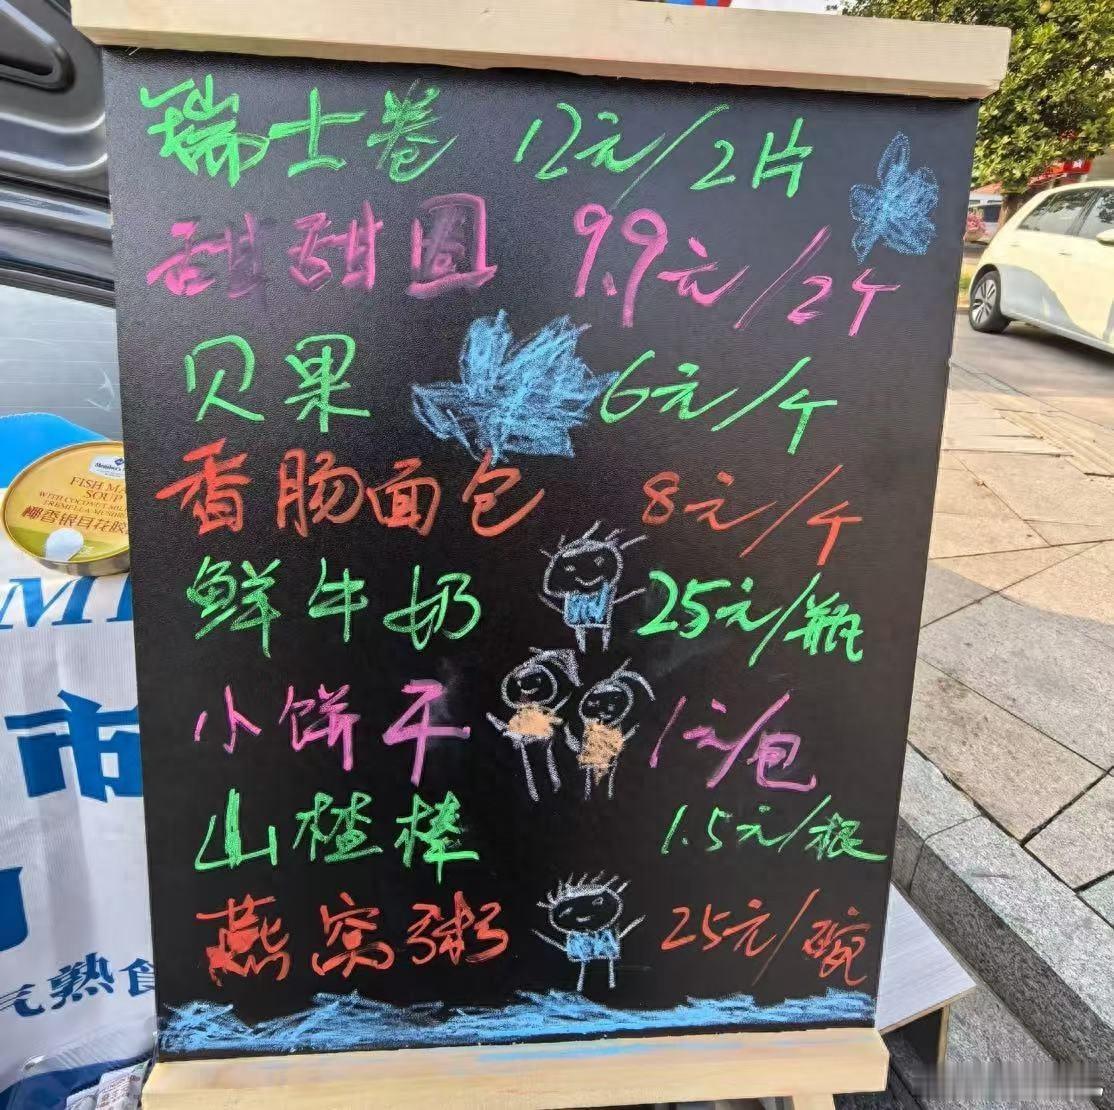 瑞士卷 12元/2片
甜甜圈 9.9元/2个
贝果 6元/个
香肠面包 8元/个
鲜牛奶 25元/瓶
小饼干 1元/包
山楂棒 1.5元/根
燕窝粥 25元/碗
Member's Mark
FISH MAW
SOUP
WITH COCONUT MILK
TREMELLA MUSHROOM
椰香银耳花胶
市
气熟食